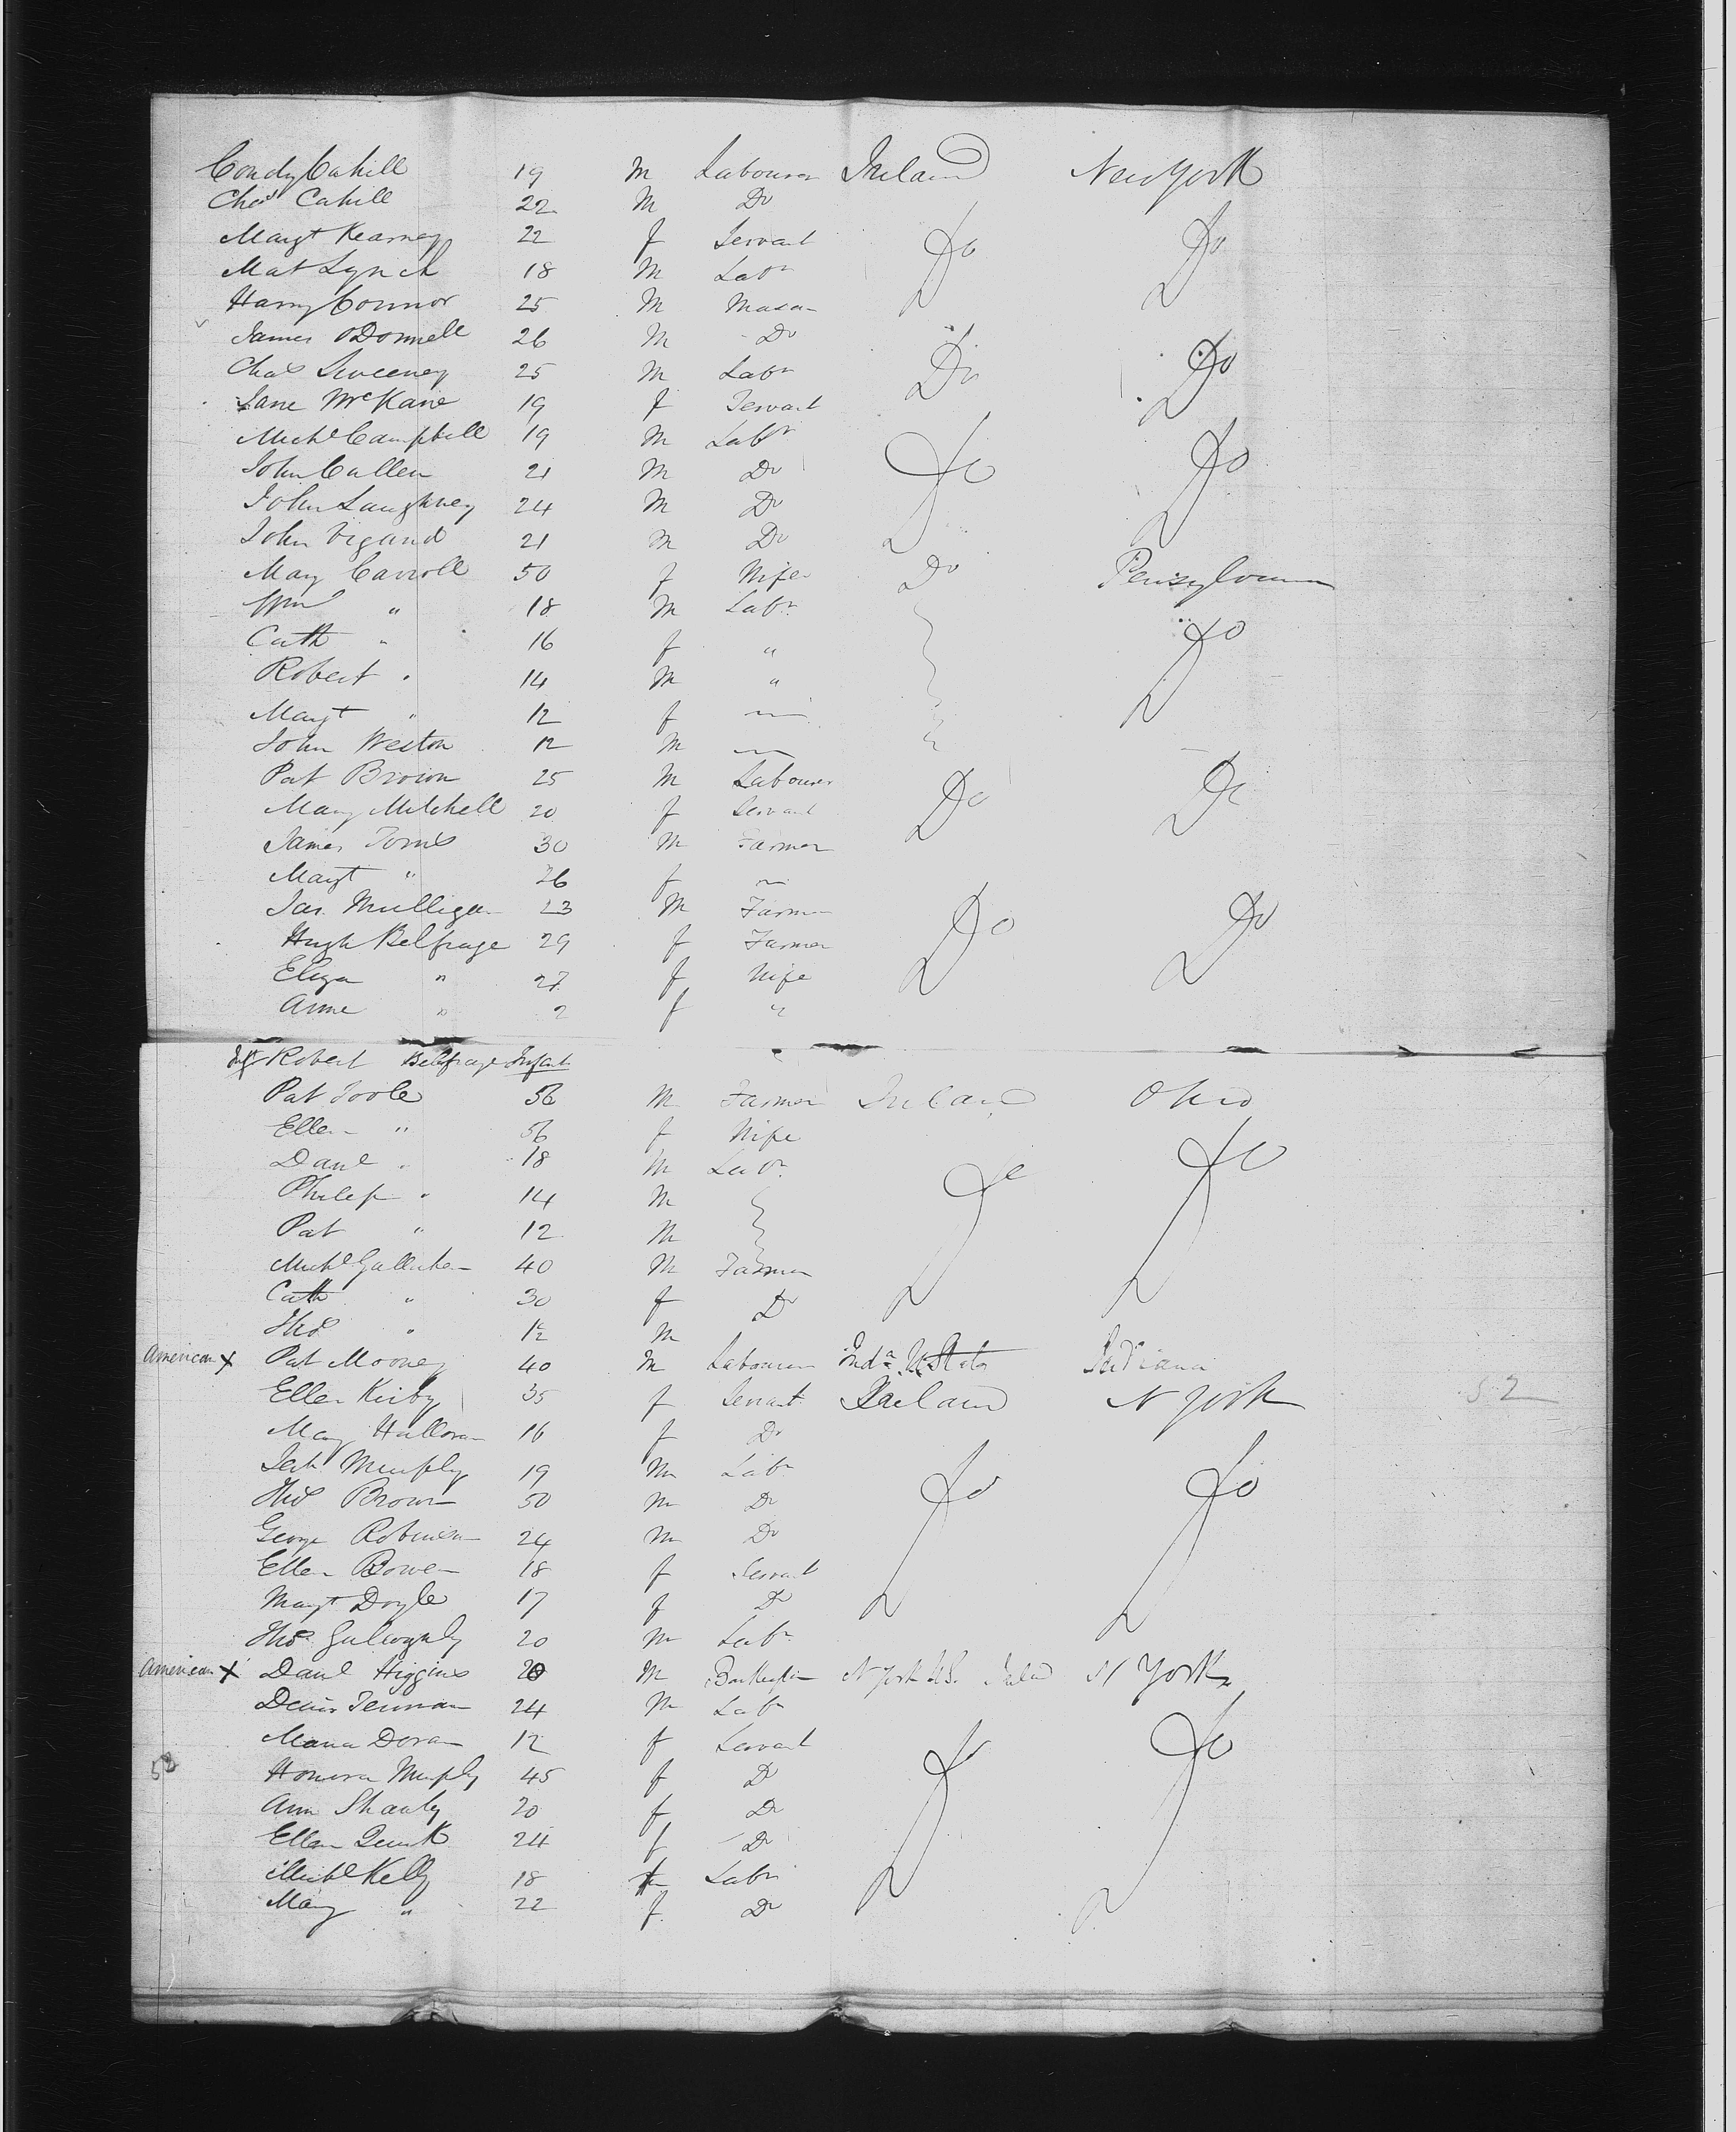 Condy Cahill 19 M Labourer Ireland New York
Chas Cahill 22 M Do
Margt Kearney 22 f Servant Do Do
Mat Lynch 18 M Labr
Harry Connor 25 M Mason
James O'Donnell 26 M Do
Chas Sweeney 25 M Labr Do Do
Jane McKane 19 f Servant
Michl Campbell 19 M Labr
John Cullen 21 M Do Do Do
John Laughney 24 M Do
John 21 M Do
Mary Carroll 50 f Wife Do Pensylvania
Wm " 18 M Labr
Cath " 16 f " Do
Robert " 14 M "
Margt " 12 f
John Weston 12 M
Pat Brown 25 M Labourer Do Do
Mary Mitchell 20 f Servant
James 30 M Farmer
Margt " 26 f
Jas. Mulligan 23 M Farmer Do Do
Hugh Belfrage 29 f Farmer
Eliza " 27 f Wife
Anne " 2 f "
Inft Robert Belfrage Infant
Pat Toole 56 M Farmer Ireland Ohio
Ellen " 56 f Wife
Danl " 18 M Labr. Do Do
Philip " 14 M
Pat " 12 M
Michl Gallicher 40 M Farmer
Cath " 30 f Do
Thos " 12 M
American X Pat Mooney 40 M Labourer Inda U States Indiana
Ellen Kirby 35 f Servant Ireland N York 52
Mary Halloran 16 f Do
Murphy 19 M Labr Do Do
Thos Brown 50 M Do
George Robinson 24 M Do
Ellen Bowen 18 f Servant
Margt Doyle 17 f Do
Thos 20 M Labr
American X Danl Higgins 20 M N York U.S. N York
Denis 24 M Labr
Maria Doran 12 f Servant Do Do
52 Honora Murphy 45 f Do
Ann Shanly 20 f Do
Ellen Quirk 24 f Do
Michl Kelly 18 M Labr
Mary " 22 f Do